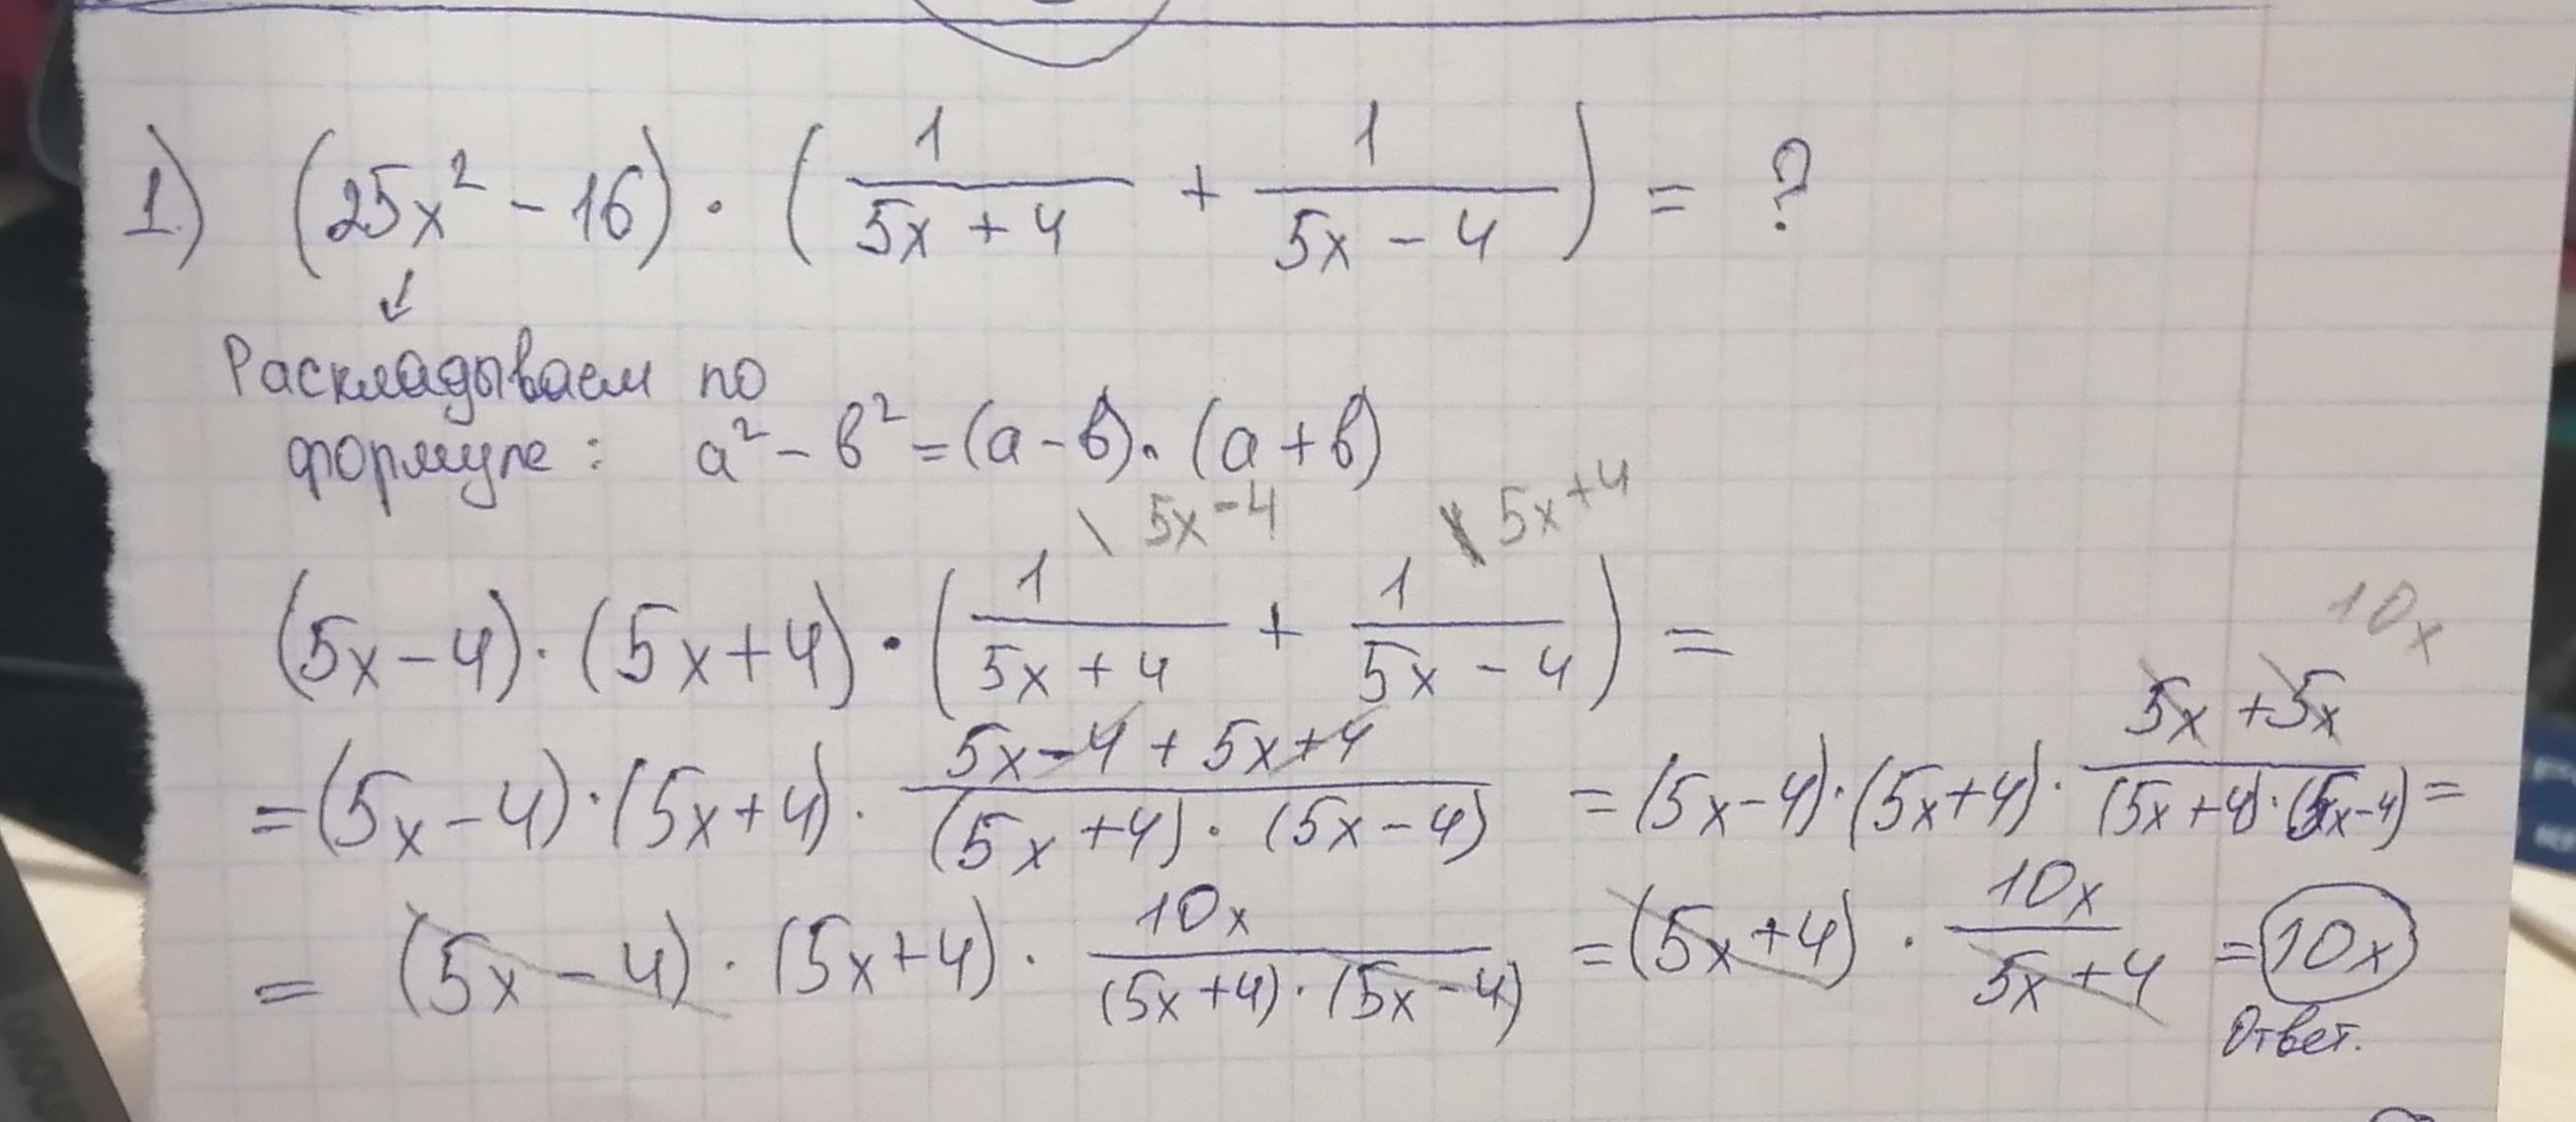 1) (25x² - 16) · (1/(5x + 4) + 1/(5x - 4)) = ?
↙
Раскладываем по
формуле: a² - b² = (a - b) · (a + b)
\ 5x - 4 \ 5x + 4
(5x - 4) · (5x + 4) · (1/(5x + 4) + 1/(5x - 4)) =
10x
= (5x - 4) · (5x + 4) · (5x - 4 + 5x + 4)/((5x + 4) · (5x - 4)) = (5x - 4) · (5x + 4) · (5x + 5x)/((5x + 4) · (5x - 4)) =
= (5x - 4) · (5x + 4) · 10x/((5x + 4) · (5x - 4)) = (5x + 4) · 10x/(5x + 4) = 10x
Ответ.